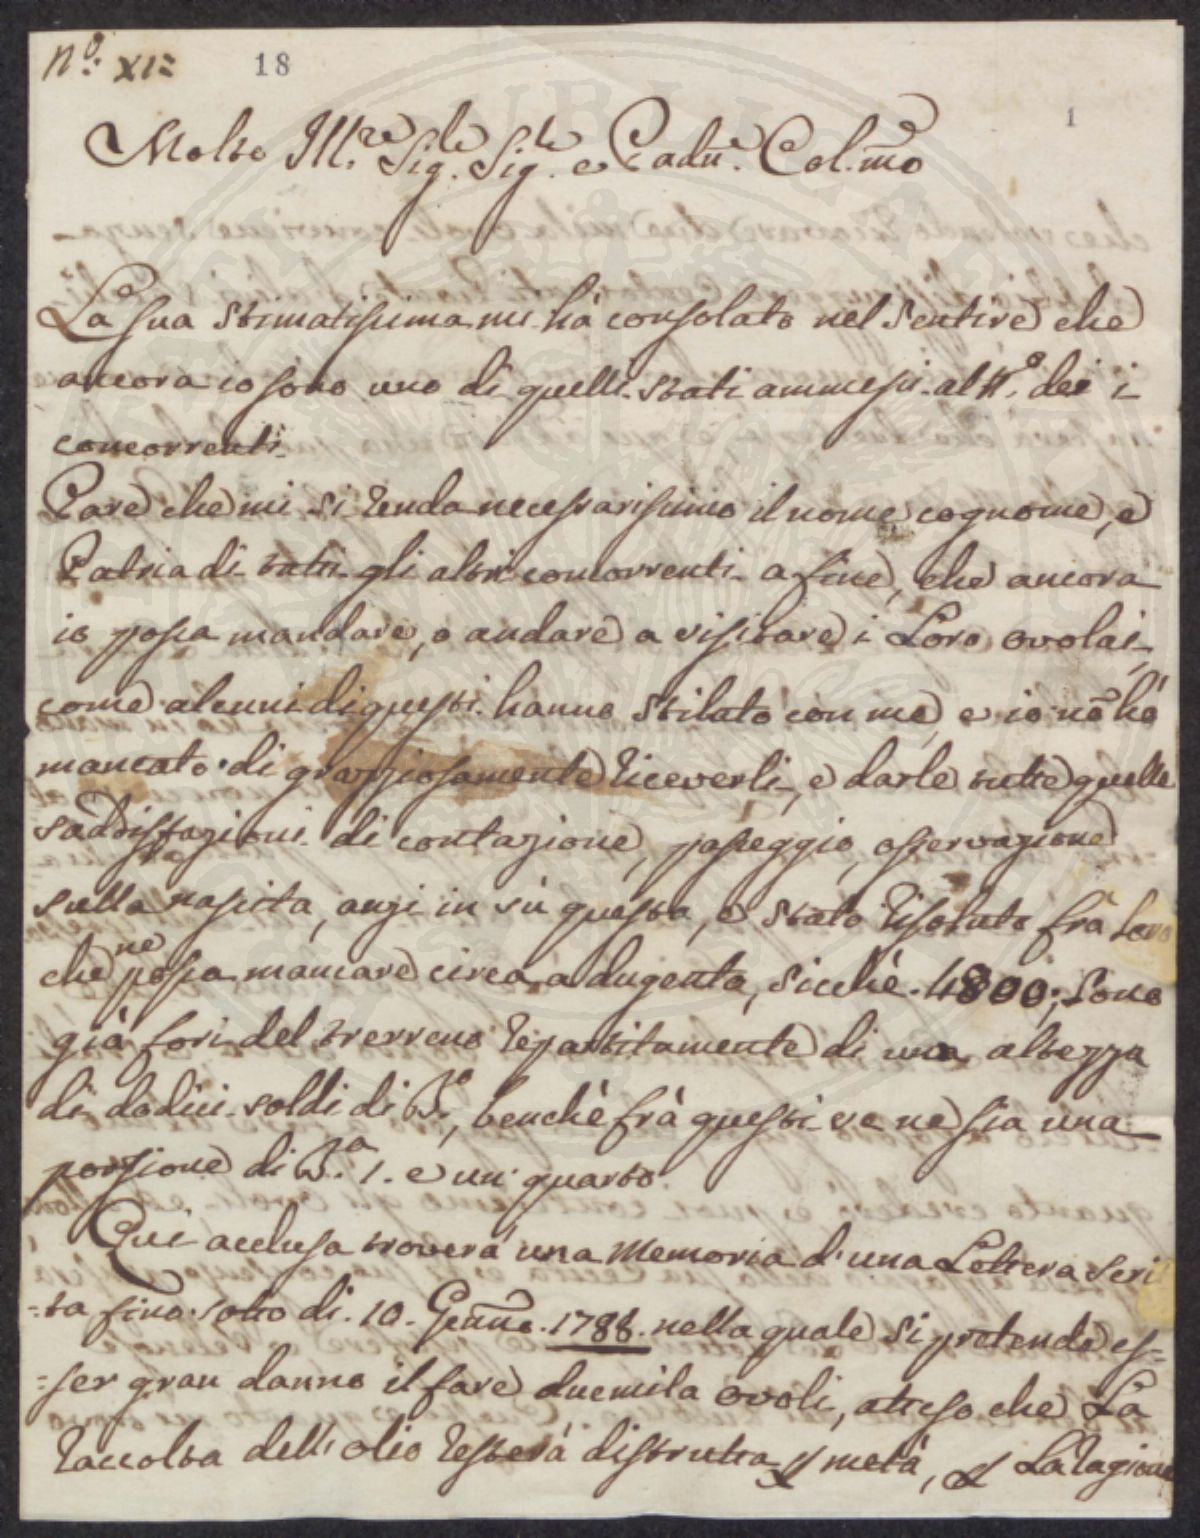 N.º XI=
18
1
Molto Ill.re Sig.le Sig.le e Padn.e Col.mo
La sua stimatissima mi hà consolato nel sentire che
ancora io sono uno di quelli stati ammessi al N.º dei i
concorrenti.
Pare che mi si renda necessarissimo il nome, cognome, e
Patria di tutti gli altri concorrenti a fine, che ancora
io possa mandare, o andare a visitare i Loro ovolai,
come alcuni di questi hanno stilato con me, e io nō hó
mancato di grazziosamente riceverli, e darle tutte quelle
saddisfazioni di contazione, passeggio, osservazione
sulla nascita, anzi in sù questa, è stato risoluto frà Loro
che ne possa mancare circa a dugento, sicchè 4800; sono
già fori del trerreno repartitamente di una altezza
di dodici soldi di B.º, benchè frà questi ve ne sia una
porzione di B.a 1. e un quarto.
Qui acclusa troverà una Memoria d'una Lettera scri
=ta fino sotto di 10. Genn.o 1788. nella quale si pretende es=
=ser gran danno il fare duemila ovoli, atteso che La
raccolta dell'olio resterà distrutta p metà, p La ragione